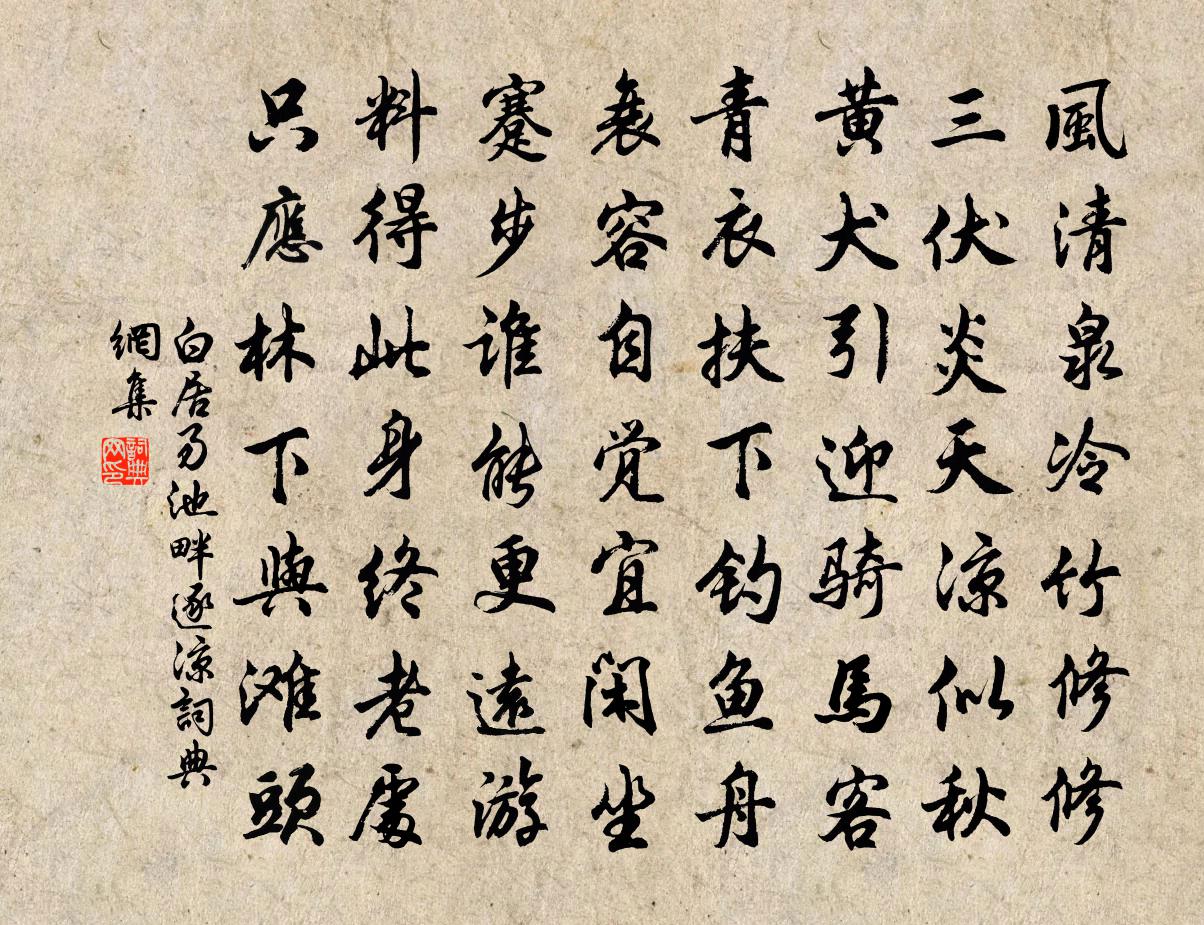 風清泉冷竹修修
三伏炎天涼似秋
黄犬引迎骑馬客
青衣扶下钓鱼舟
衰容自觉宜闲坐
蹇步谁能更遠游
料得此身终老處
只應林下與滩頭
白居易池畔逐凉詞典
網集
詞典
网印